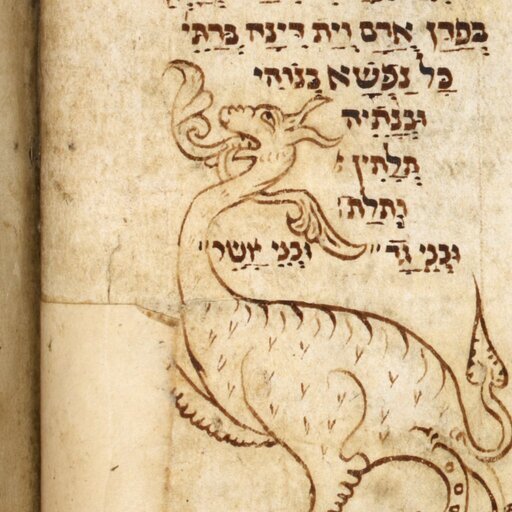 בפדן ארם וית דינה ברתי
כל נפשא בנוהי
ובנתיה
תלתין
ותלת
ובני גד ובני אשר